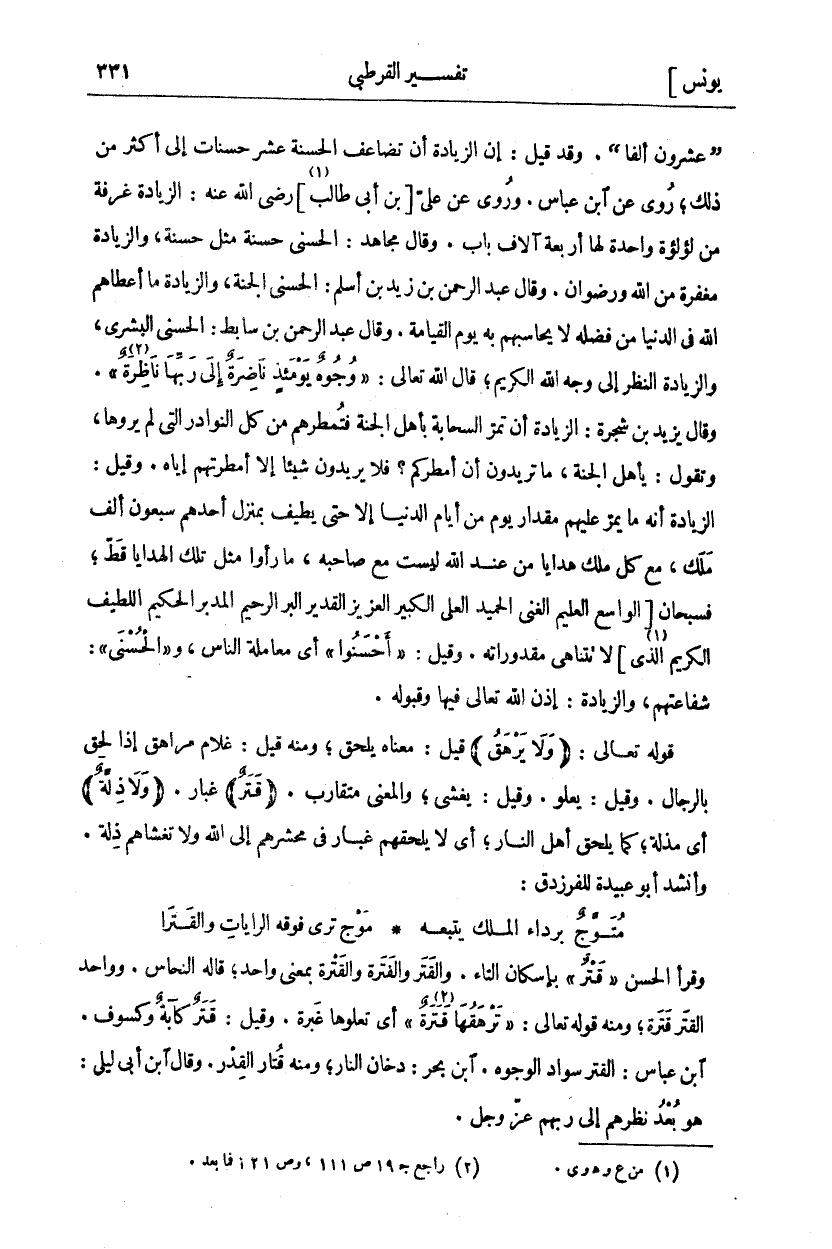 يونس ] تفسير القرطبي ٣٣١
”عشرون ألفا“ . وقد قيل : إن الزيادة أن تضاعف الحسنة عشر حسنات إلى أكثر من
ذلك؛ رُوى عن آبن عباس . ورُوى عن علىّ [ بن أبى طالب (١) ] رضى الله عنه : الزيادة غرفة
من لؤلؤة واحدة لها أربعة آلاف باب . وقال مجاهد : الحسنى حسنة مثل حسنة، والزيادة
مغفرة من الله ورضوان . وقال عبد الرحمن بن زيد بن أسلم: الحسنى الجنة، والزيادة ما أعطاهم
الله فى الدنيا من فضله لا يحاسبهم به يوم القيامة . وقال عبد الرحمن بن سابط: الحسنى البشرى،
والزيادة النظر إلى وجه الله الكريم؛ قال الله تعالى : « وُجُوهٌ يَوْمَئِذٍ نَاضِرَةٌ إِلَى رَبِّهَا نَاظِرَةٌ (٢) » .
وقال يزيد بن شجرة : الزيادة أن تمرّ السحابة بأهل الجنة فتُمطرهم من كل النوادر التى لم يروها،
وتقول : يأهل الجنة ، ما تريدون أن أمطركم ؟ فلا يريدون شيئا إلا أمطرتهم إياه . وقيل :
الزيادة أنه ما يمرّ عليهم مقدار يوم من أيام الدنيا إلا حتى يطيف بمنزل أحدهم سبعون ألف
مَلَك ، مع كل ملك هدايا من عند الله ليست مع صاحبه ، ما رأوا مثل تلك الهدايا قَطّ ؛
فسبحان [ الواسع العليم الغنى الحميد العلى الكبير العزيز القدير البر الرحيم المدبر الحكيم اللطيف
الكريم الذى (١) ] لا تتناهى مقدوراته . وقيل : « أَحْسَنُوا » أى معاملة الناس ، و«الْحُسْنَى» :
شفاعتهم، والزيادة : إذن الله تعالى فيها وقبوله .
قوله تعالى : ﴿ وَلَا يَرْهَقُ ﴾ قيل : معناه يلحق ؛ ومنه قيل : غلام مراهق إذا لحق
بالرجال . وقيل : يعلو . وقيل : يغشى؛ والمعنى متقارب . ﴿ قَتَرٌ ﴾ غبار . ﴿ وَلَا ذِلَّةٌ ﴾
أى مذلة؛ كما يلحق أهل النار؛ أى لا يلحقهم غبار فى محشرهم إلى الله ولا تغشاهم ذِلة .
وأنشد أبو عبيدة للفرزدق :
مُتَوَّجٌ برداء الملك يتبعه * مَوْج ترى فوقه الراياتِ والقَتَرَا
وقرأ الحسن « قَتْرٌ » بإسكان التاء . والقَتَر والقَتَرة والقَتْرة بمعنى واحد؛ قاله النحاس . وواحد
القتَر قَتَرة؛ ومنه قوله تعالى : « تَرْهَقُهَا قَتَرَةٌ (٢) » أى تعلوها غَبرة . وقيل : قَتَرٌ كآبةٌ وكسوف .
آبن عباس : القتر سواد الوجوه . آبن بحر : دخان النار؛ ومنه قُتار القِدْر . وقال آبن أبى ليلى :
هو بُعْدُ نظرهم إلى ربهم عزّ وجل .
(١) من ع و ه و ى . (٢) راجع جـ ١٩ ص ١١١ ، وص ٢١ فما بعد .